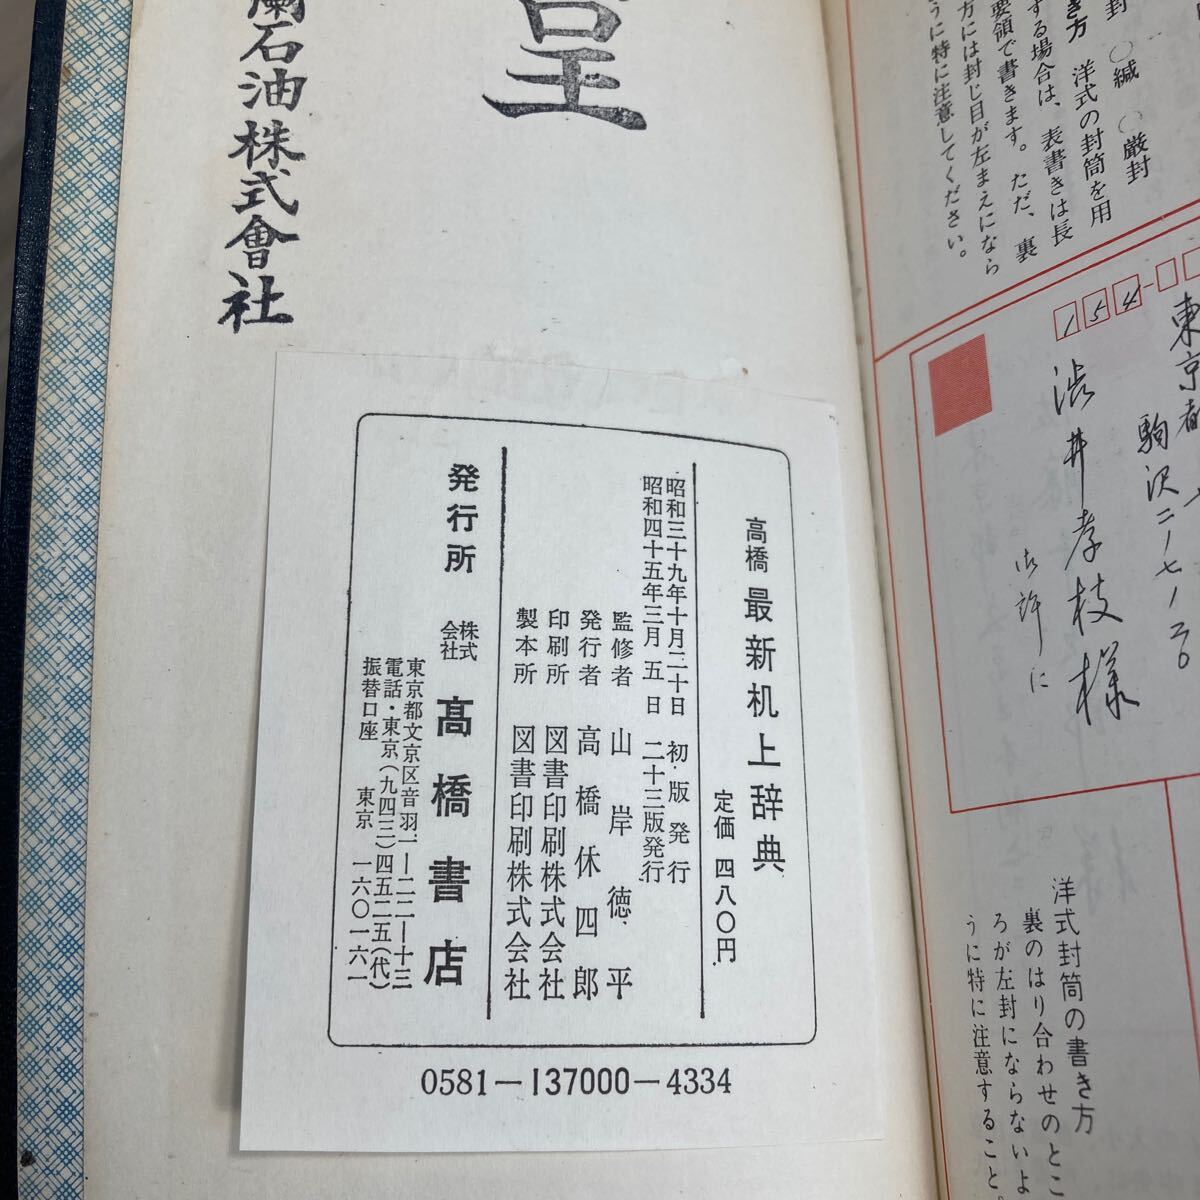 き方　洋式の封筒を用
する場合は、表書きは長
要領で書きます。ただ、裏
方には封じ目が左まえになら
うに特に注意してください。
封　○緘　○厳封
154-
東京都
駒沢二ノ七ノ
渋井孝枝様
御許に
洋式封筒の書き方
裏のはり合わせのとこ
ろが左封にならないよ
うに特に注意すること。
呈
蘭石油株式會社
高橋 最新机上辞典
定価 四八〇円
昭和三十九年十月二十日　初版発行
昭和四十五年三月五日　二十三版発行
監修者　山岸徳平
発行者　高橋休四郎
印刷所　図書印刷株式会社
製本所　図書印刷株式会社
発行所　株式会社　髙橋書店
東京都文京区音羽一—二二—十三
電話・東京(九四三)四五二五(代)
振替口座　東京　一六〇一六一
0581—137000—4334